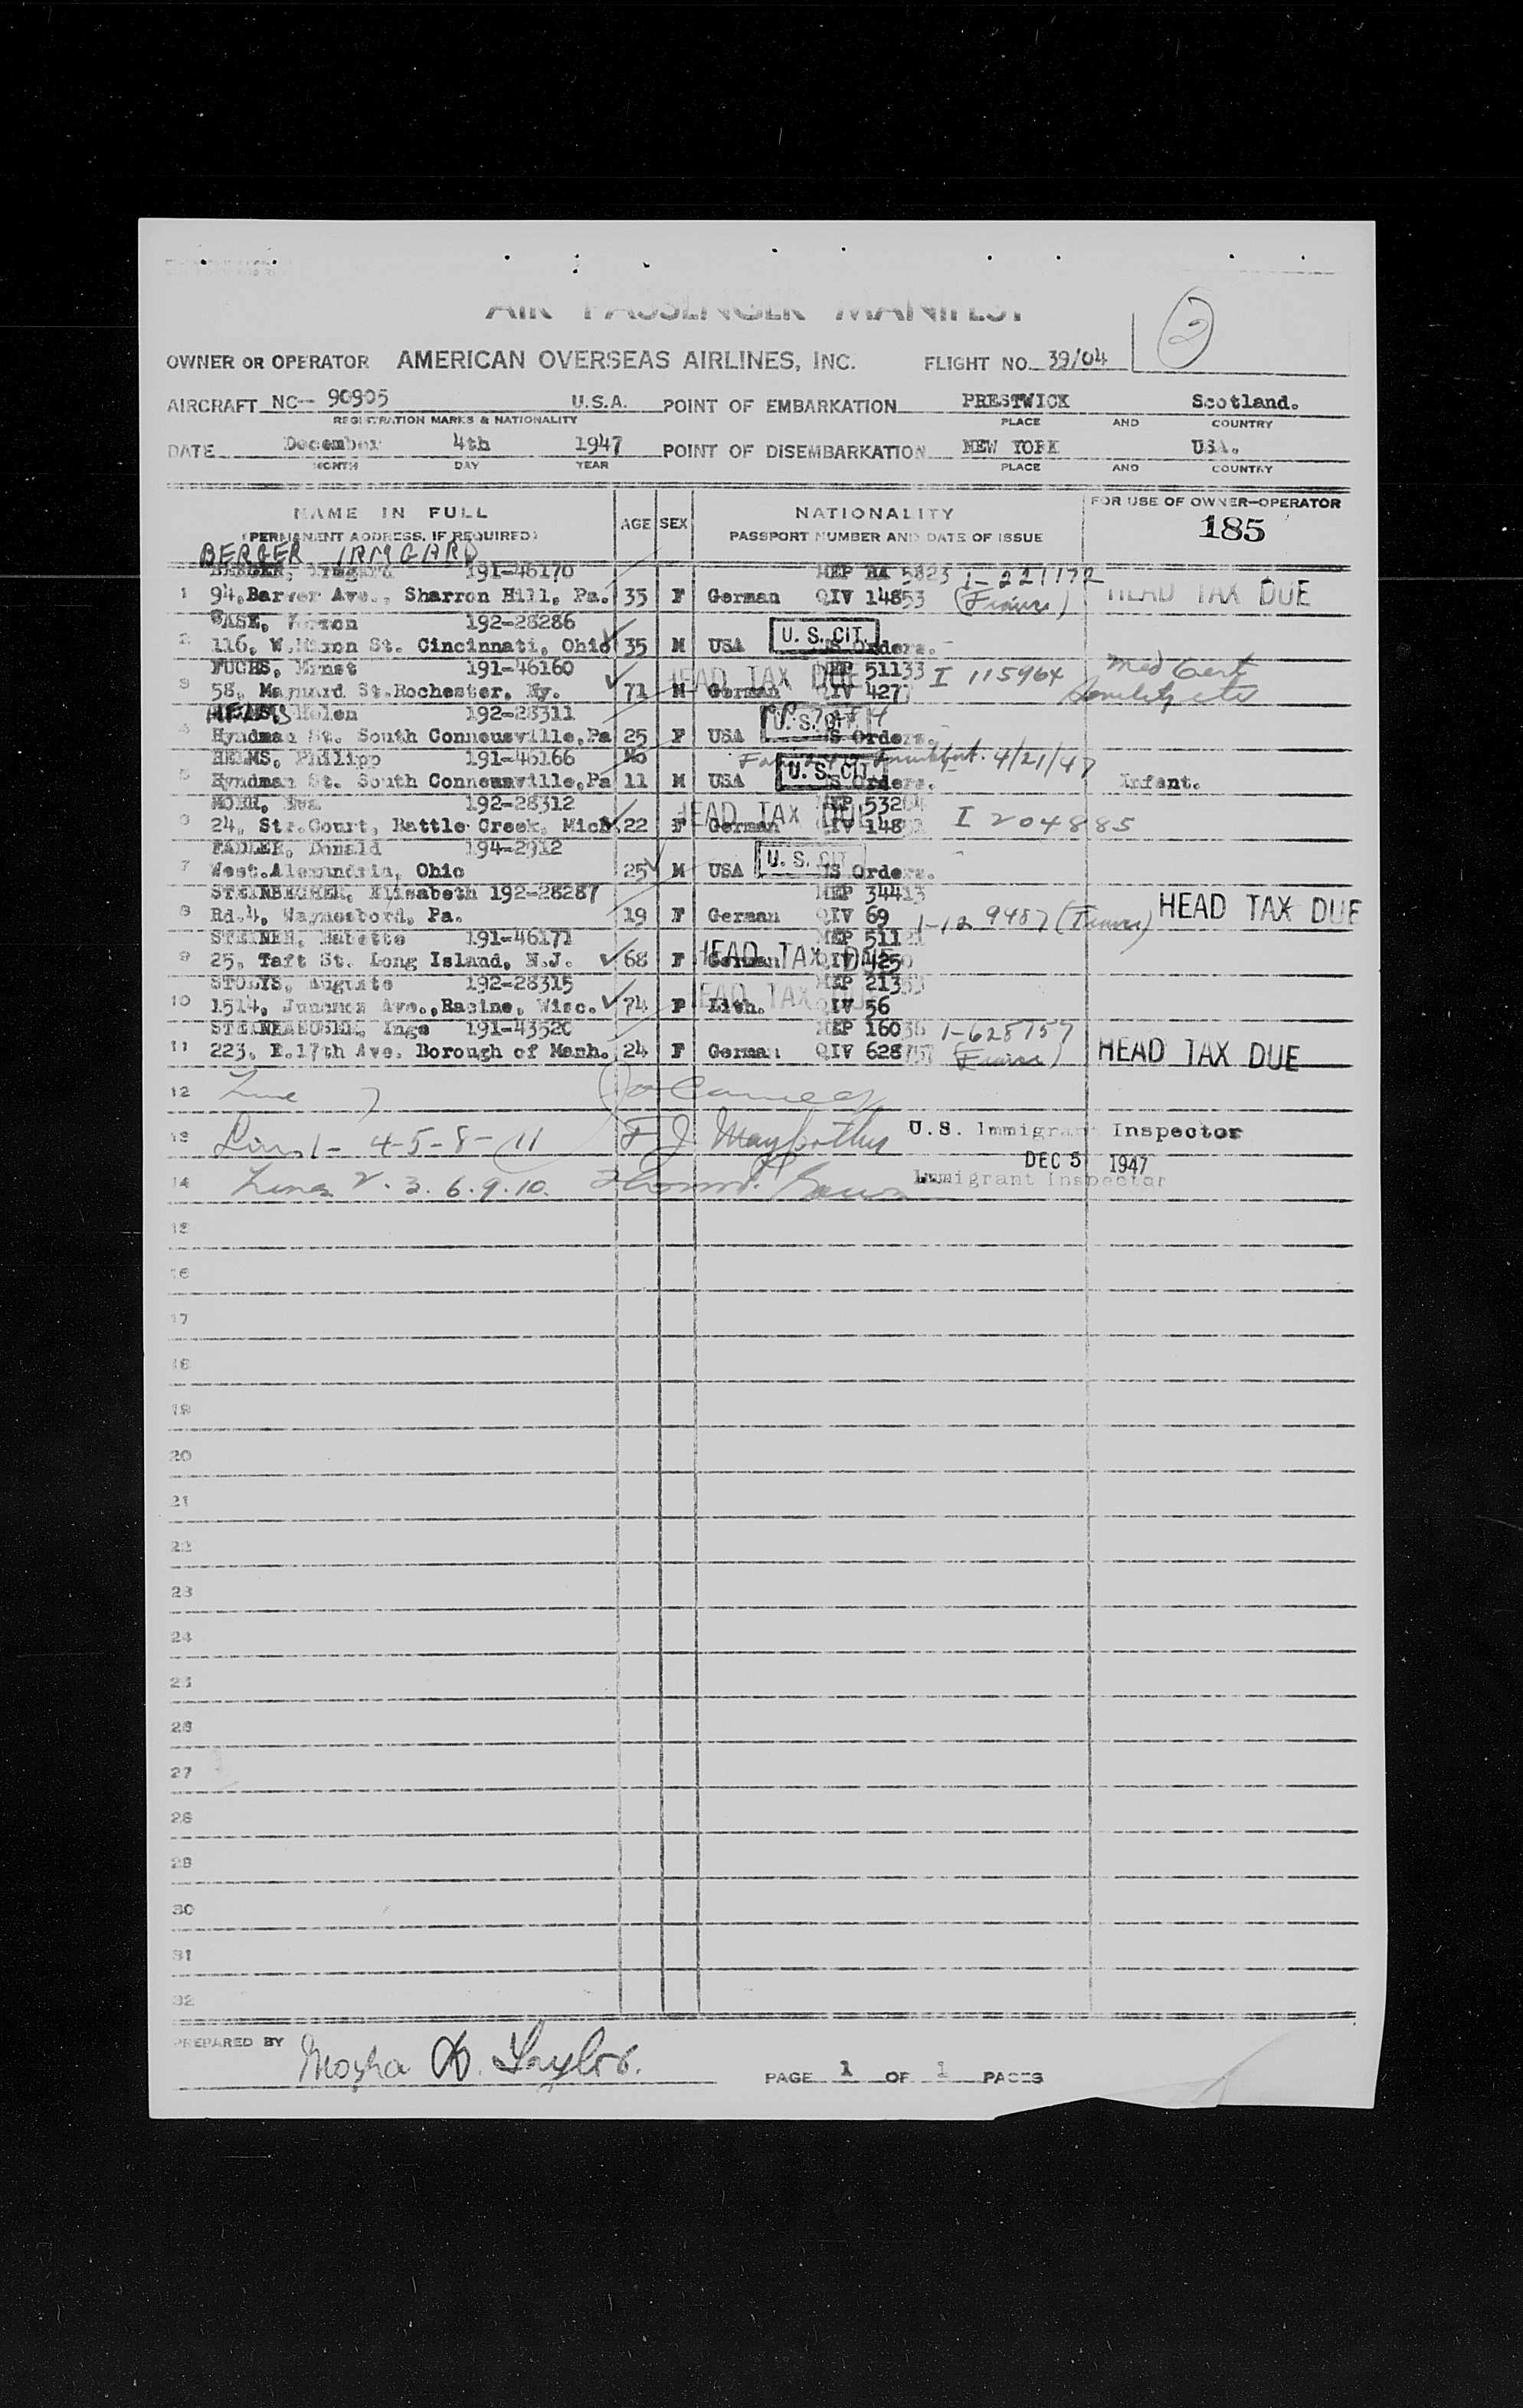 AIR PASSENGER MANIFEST
2
OWNER OR OPERATOR AMERICAN OVERSEAS AIRLINES, INC. FLIGHT NO. 39/04
AIRCRAFT NC-- 90905 U.S.A. POINT OF EMBARKATION PRESTWICK Scotland.
REGISTRATION MARKS & NATIONALITY PLACE AND COUNTRY
DATE December 4th 1947 POINT OF DISEMBARKATION NEW YORK USA.
MONTH DAY YEAR PLACE AND COUNTRY
NAME IN FULL AGE SEX NATIONALITY FOR USE OF OWNER-OPERATOR
(PERMANENT ADDRESS, IF REQUIRED) PASSPORT NUMBER AND DATE OF ISSUE 185
BERGER IRMGARD
BERGER, 191-46170 MEP BA 5823 I-221172
1 94, Ave., Sharron Hill, Pa. 35 F German QIV 14853 HEAD TAX DUE
192-28286
2 116, W. St. Cincinnati, Ohio 35 M USA U. S. CIT. Orders.
FUCHS, Ernst 191-46160 HEAD TAX DUE MEP 51133 I 115964 Med Cert
3 58, Maynard St. Rochester, Ny. 71 M German QIV 4277
HELMS Helen 192-28311
4 Hyndman St. South Connousville, Pa 25 F USA U. S. CIT. US Orders.
HELMS, Philipp 191-46166 Frankfurt. 4/21/47
5 Hyndman St. South Connousville, Pa 11 M USA U. S. CIT. US Orders. Infant.
MOHR, Eva 192-28312 HEAD TAX DUE MEP 5320
6 24, Str. Court, Battle Creek, Mich 22 F German QIV 148 I 204885
Donald 194-2912
7 West. Alexandria, Ohio 25 M USA U. S. CIT. US Orders.
STEINBECHER, Elisabeth 192-28287 MEP 34413
8 Rd.4, Waynesbord, Pa. 19 F German QIV 69 I-129487 HEAD TAX DUE
STEINER, Babette 191-46171 MEP 511
9 25, Taft St. Long Island, N.J. 68 F German HEAD TAX DUE QIV 4250
Auguste 192-28315 MEP 213
10 1514, Ave., Racine, Wisc. 74 F Lith. HEAD TAX DUE QIV 56
Inge 191-43520 MEP 16036 I-628757
11 223, E.17th Ave. Borough of Manh. 24 F German QIV 628757 HEAD TAX DUE
12 Line 7
13 Lines 1- 4-5-8-11 F J U.S. Immigrant Inspector
DEC 5 1947
14 Lines 2. 3. 6. 9. 10. Immigrant Inspector
15
16
17
18
19
20
21
22
23
24
25
26
27
28
29
30
31
32
PREPARED BY D. Taylor.
PAGE 1 OF 1 PAGES